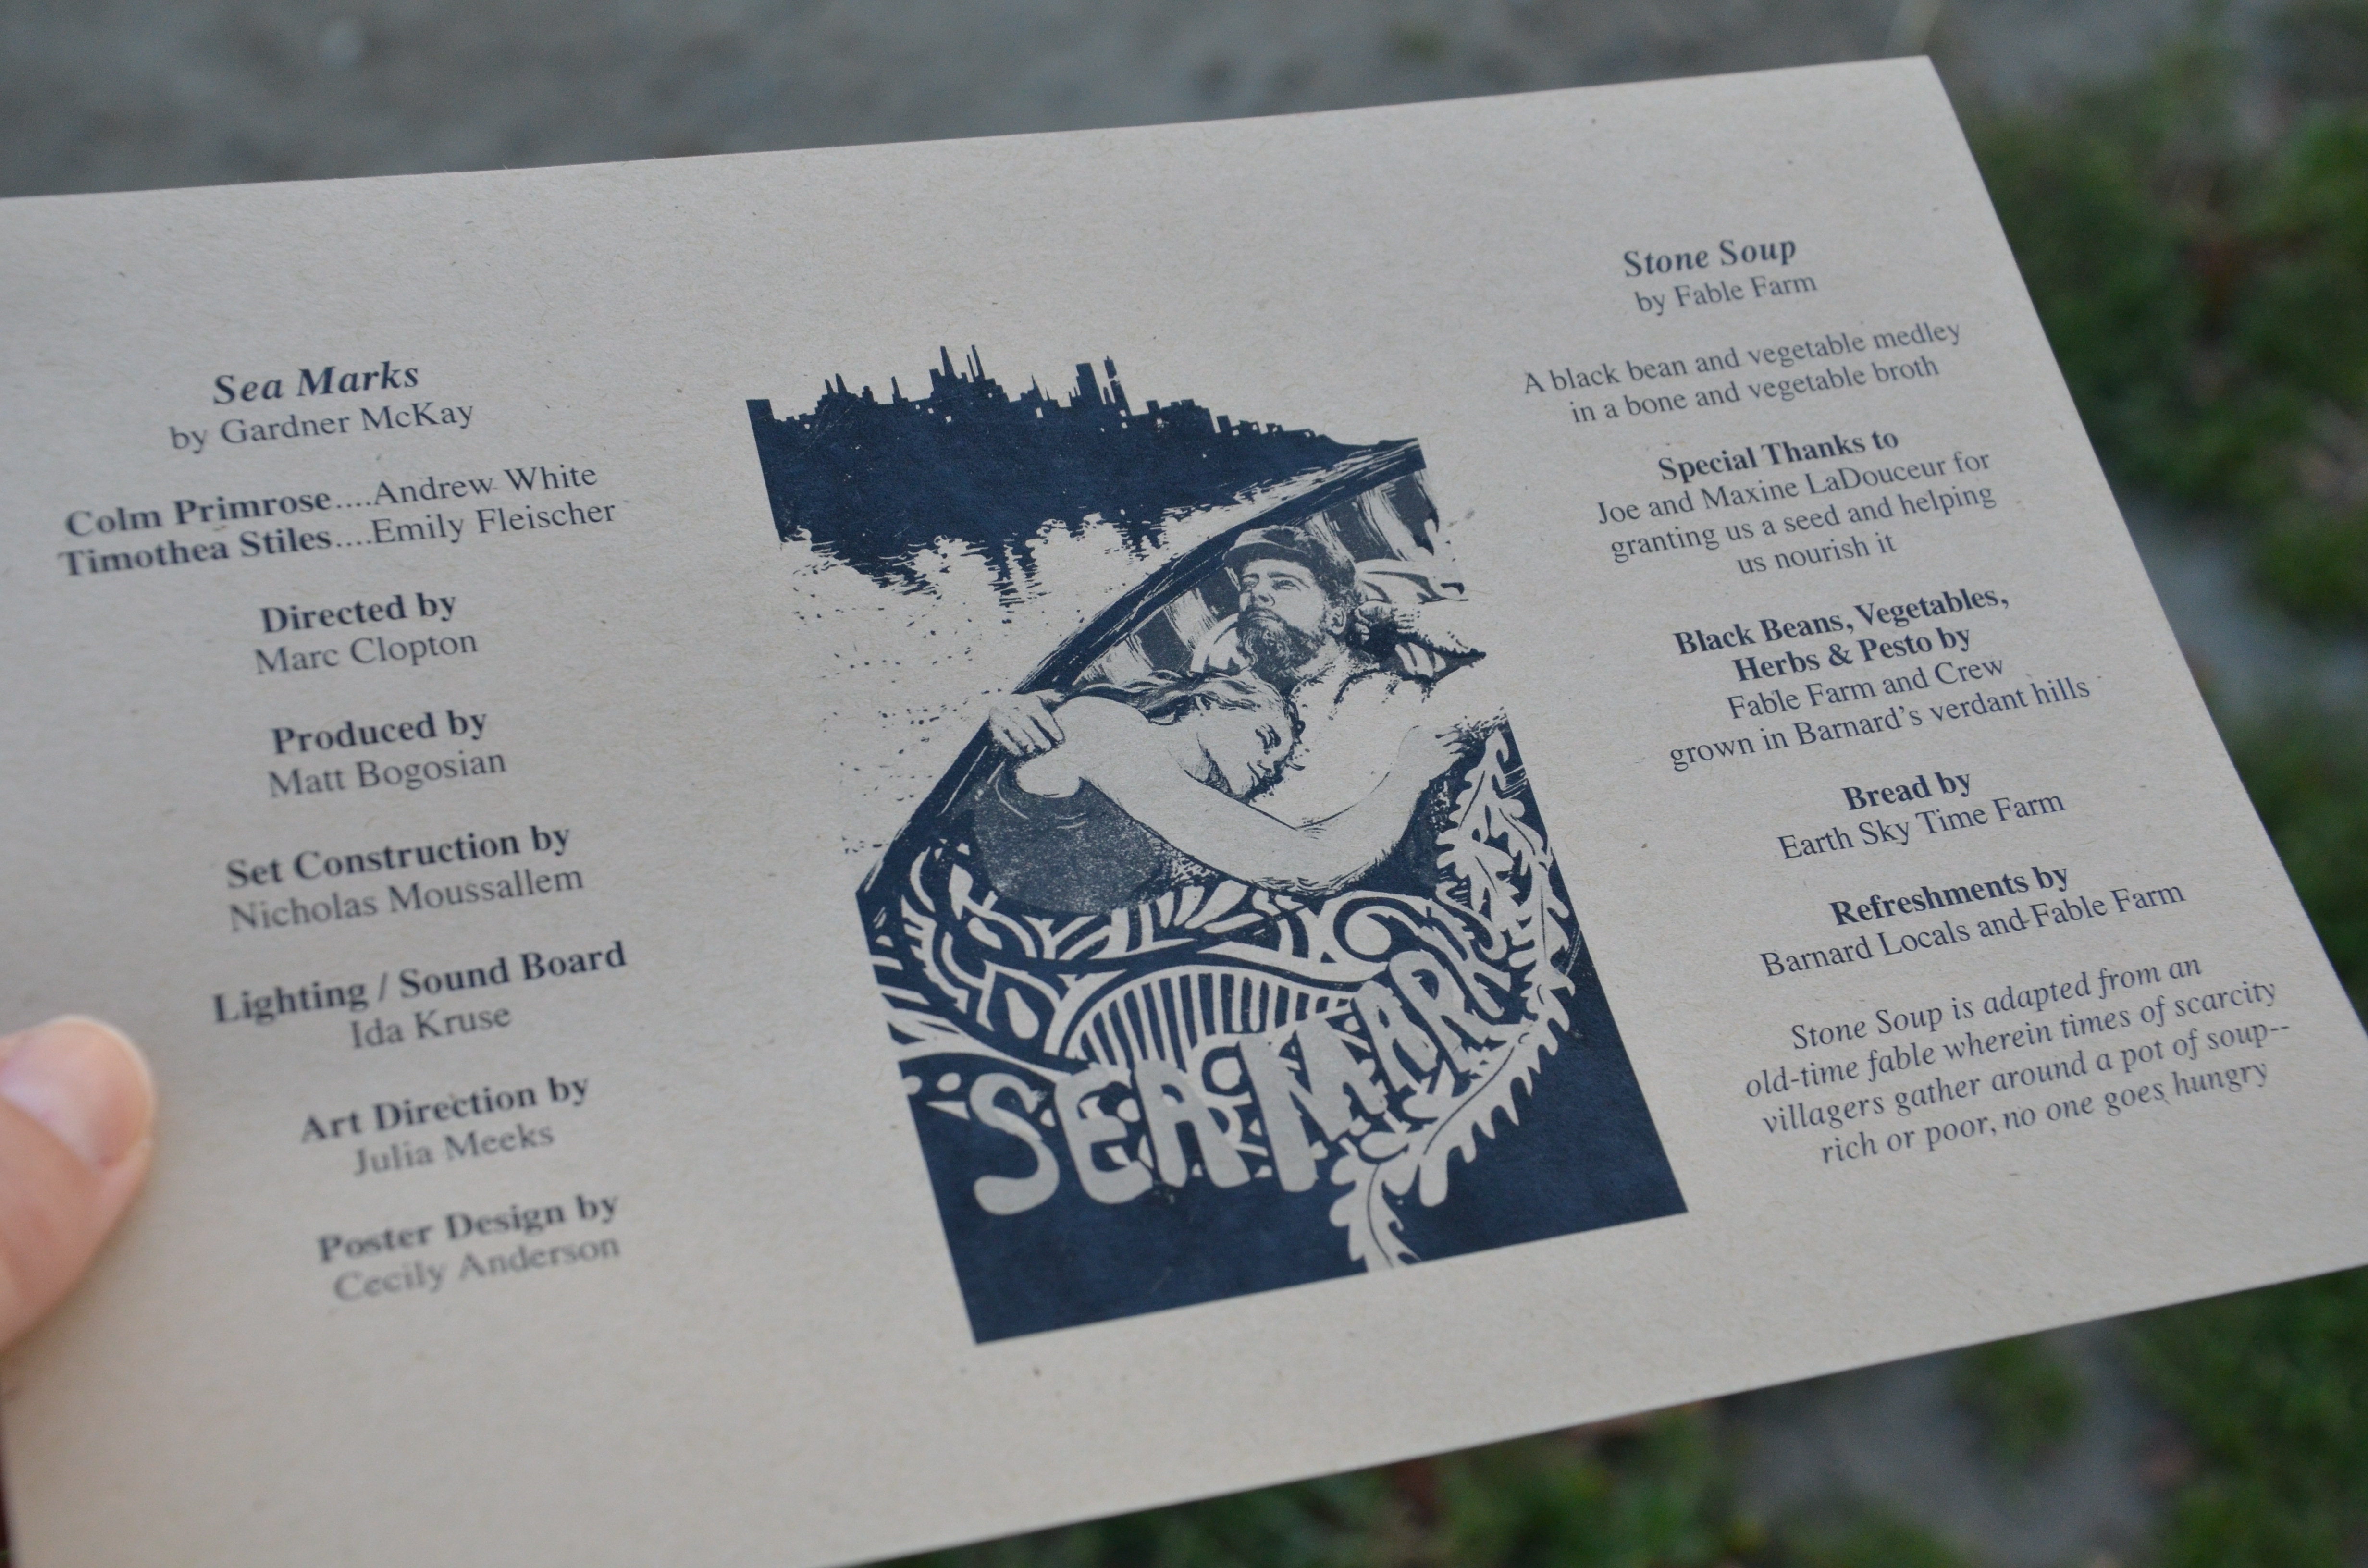 Sea Marks
by Gardner McKay
Colm Primrose....Andrew White
Timothea Stiles....Emily Fleischer
Directed by
Marc Clopton
Produced by
Matt Bogosian
Set Construction by
Nicholas Moussallem
Lighting / Sound Board
Ida Kruse
Art Direction by
Julia Meeks
Poster Design by
Cecily Anderson
SEA MARKS
Stone Soup
by Fable Farm
A black bean and vegetable medley
in a bone and vegetable broth
Special Thanks to
Joe and Maxine LaDouceur for
granting us a seed and helping
us nourish it
Black Beans, Vegetables,
Herbs & Pesto by
Fable Farm and Crew
grown in Barnard's verdant hills
Bread by
Earth Sky Time Farm
Refreshments by
Barnard Locals and Fable Farm
Stone Soup is adapted from an
old-time fable wherein times of scarcity
villagers gather around a pot of soup--
rich or poor, no one goes hungry